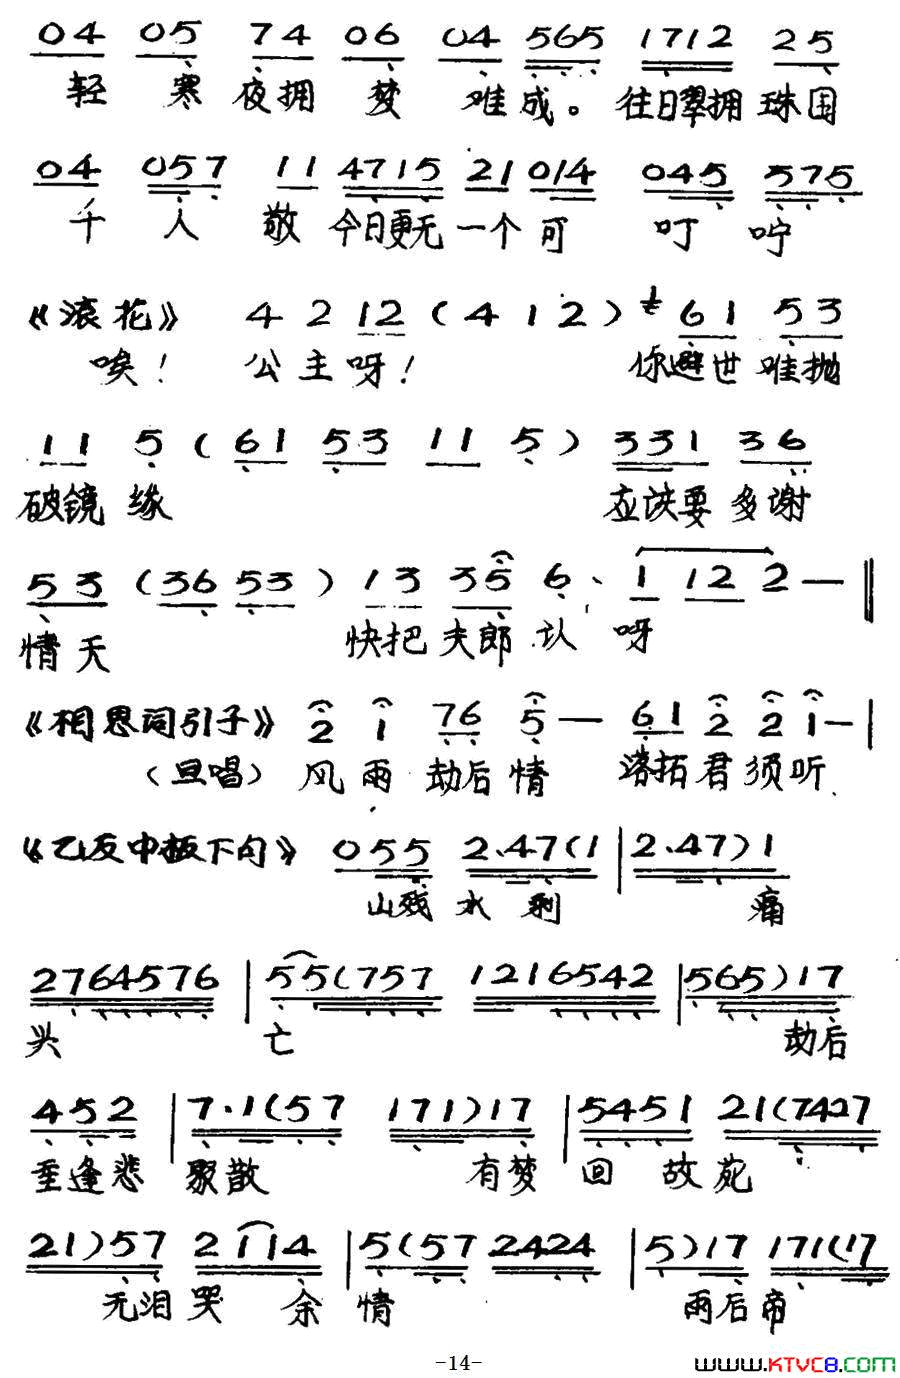 04 05 74 06 04 565 1712 25
轻 寒 夜拥 梦 难成。往日翠拥 珠围
04 057 11 4715 21 014 045 575
千 人 敬 今日更无 一个 可 叮 咛
《滚花》 4 2 12 (4 1 2) 61 53
唉! 公主呀! 你避世 难抛
11 5 (61 53 11 5) 331 36
破镜 缘 应该要 多谢
53 (36 53) 13 35 6. 1 12 2 — ‖
情天 快把 夫郎 认 呀
《相思词引子》 2 1 76 5 — 61 2 2 1 — |
(旦唱) 风 雨 劫后 情 落拓 君 须 听
《乙反中板下句》 055 2.47(1 | 2.47)1
山残 水 剩 痛
2764576 | 55(757 1216542 | 565)17
头 亡 劫后
452 | 7.1(57 171)17 | 5451 21(7427
重逢悲 聚散 有梦 回 故苑
21)57 2114 | 5(57 2424 | 5)17 171(17
无泪 哭 余 情 雨后 帝
-14-
www.KTVC8.com